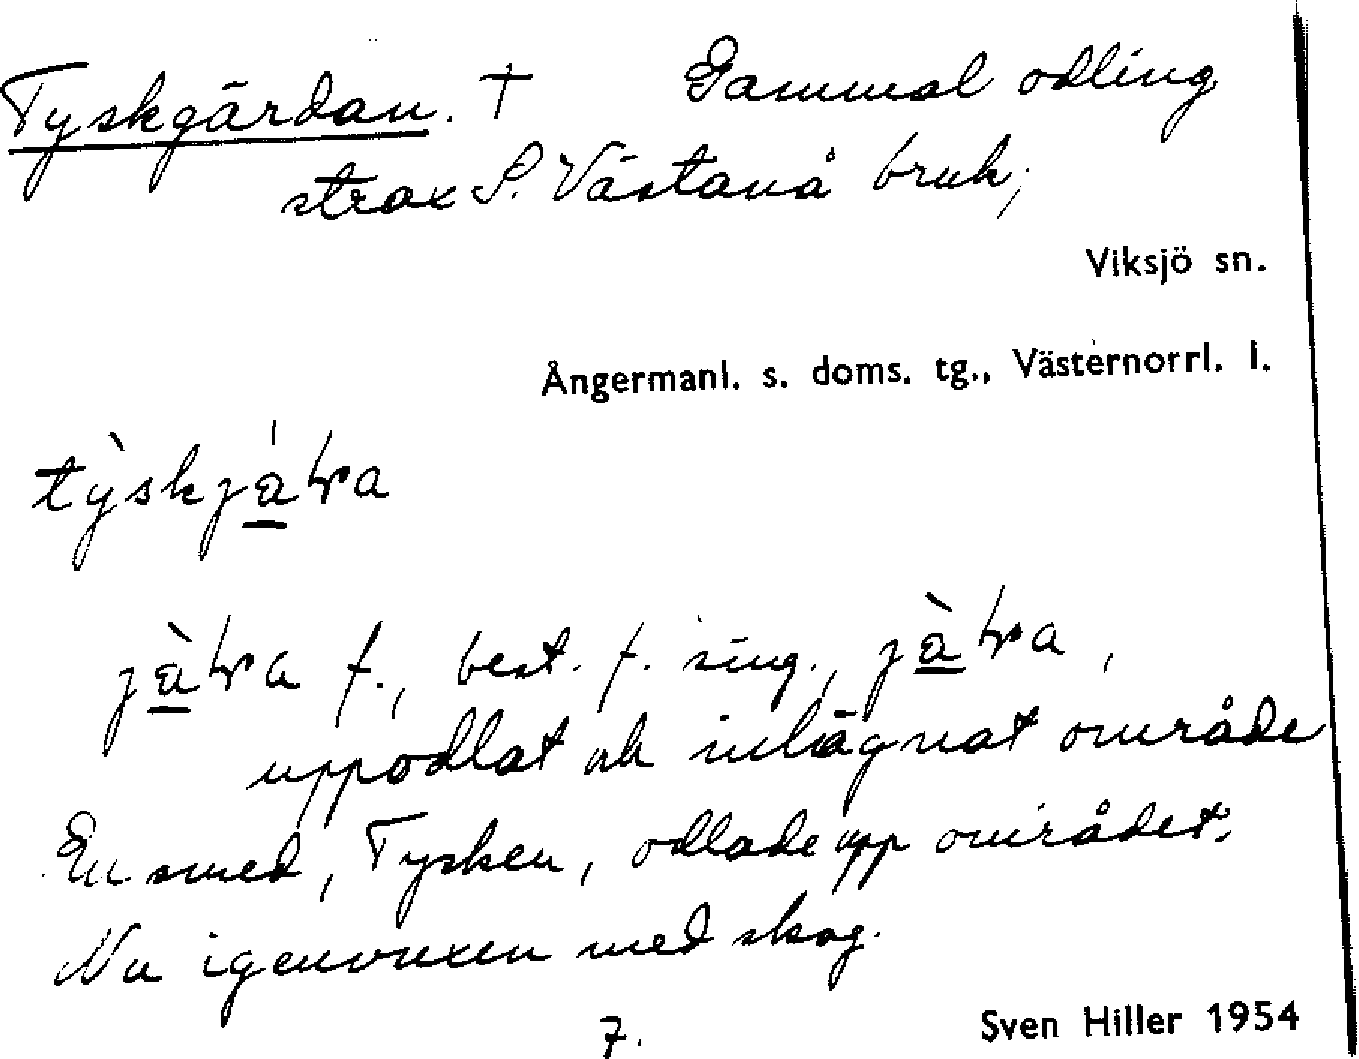 Tyskgärdan. † Gammal odling
strax S. Västanå bruk;
Viksjö sn.
Ångermanl. s. doms. tg., Västernorrl. l.
f., best. f. sing.,
uppodlat och inhägnat område
En smed, Tysken, odlade upp området.
Nu igenvuxen med skog.
7.
Sven Hiller 1954